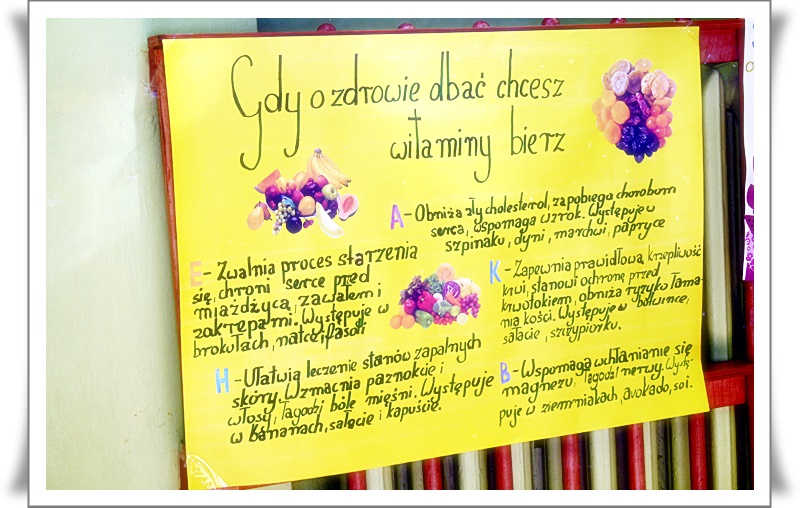 Gdy o zdrowie dbać chcesz
witaminy bierz
A - Obniża zły cholesterol, zapobiega chorobom
serca, wspomaga wzrok. Występuje w
szpinaku, dyni, marchwi, papryce
E - Zwalnia proces starzenia
się, chroni serce przed
miażdżycą, zawałem i
zakrzepami. Występuje w
brokułach, natce, fasoli
K - Zapewnia prawidłową krzepliwość
krwi, stanowi ochronę przed
krwotokiem, obniża ryzyko łama-
nia kości. Występuje w botwince,
sałacie, szczypiorku.
H - Ułatwia leczenie stanów zapalnych
skóry. Wzmacnia paznokcie i
włosy, łagodzi bóle mięśni. Występuje
w bananach, sałacie i kapuście.
B - Wspomaga wchłanianie się
magnezu. łagodzi nerwy. Wystę-
puje w ziemniakach, avokado, soi.